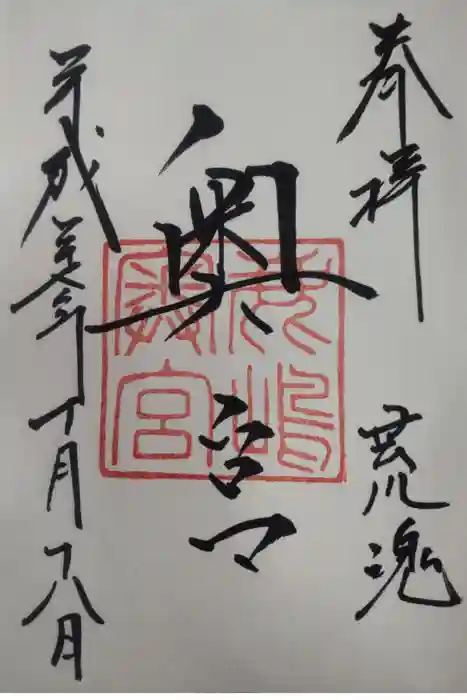 奉拝　荒魂
奥宮
平成年十月十八日
鹿嶋
奥宮